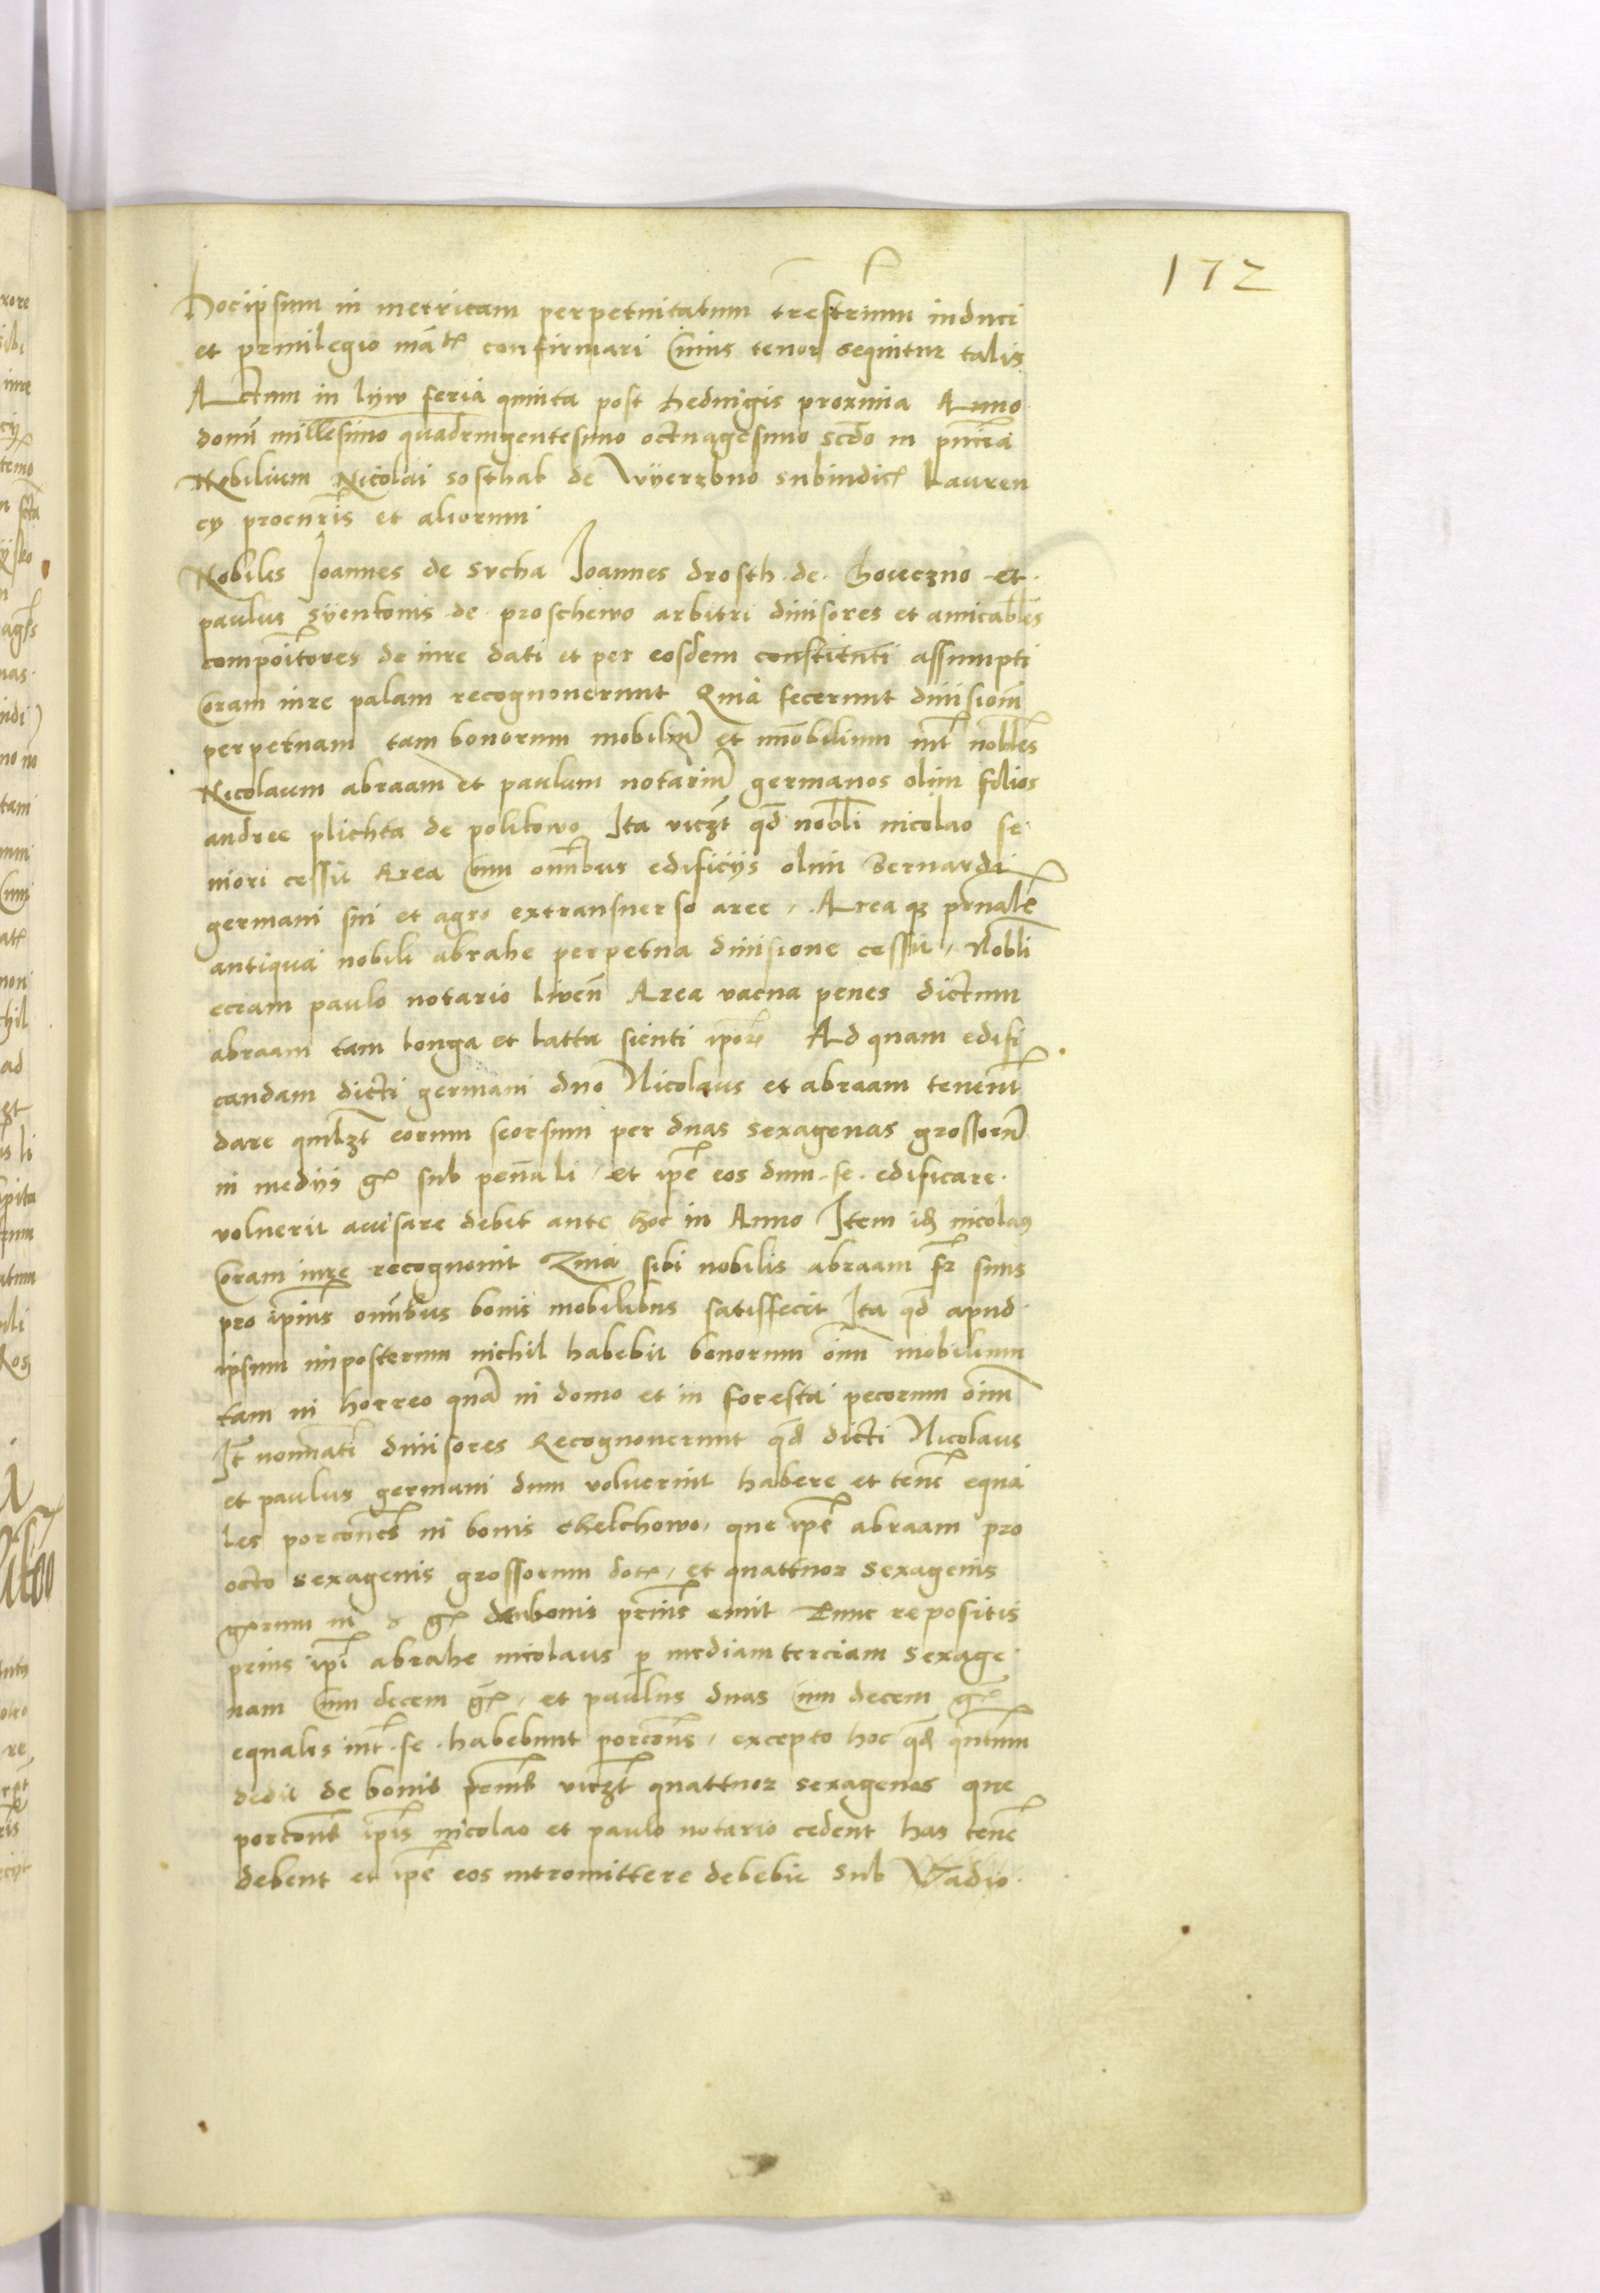 172
Hocipsum in metricam perpetuitatum trestrium induci
et priuilegio mate confirmari Cuius tenor sequitur talis
Actum in lyw feria quinta post hedwigis proxima Anno
domi millesimo quadringentesimo octuagesimo scdo in pncia
Nobilium Nicolai sosthak de wyerzbno subiudic Lauren
cy procuris et aliorum
Nobilis Joannes de sucha Joannes drosth de Goueczno et
paulus syenkonis de proschewo arbitri diuisores et amicabiles
compoitores de iure dati et per eosdem constituti assumpti
Coram iure palam recognouerunt Quia fecerunt diuisionem
perpetuam tam bonorum mobilium et immobilium int nobiles
Nicolaum abraam et paulum notarium germanos olim filios
andree plichta de polikowo Ita viczt qd nobili nicolao se
niori cessit Area Cum omibus edificijs olim Bernardi
germani sui et agro extransuerso aree, Area qz prnale
antiqua nobili abrahe perpetua diuisione cessit, Nobli
eciam paulo notario liuen Area vacua penes dictum
abraam tam longa et latta sicuti ipor Ad quam edifi
candam dicti germani duo Nicolaus et abraam tenent
dare quilzt eorum seorsum per duas sexagenas grossorum
in medijs gr sub penali, et ipe eos dum se edificare
voluerit auisare debit ante hoc in Anno Item id nicolaus
Coram iure recognouit Quia sibi nobilis abraam fr suus
pro ipius omibus bonis mobilibus satisfecit Ita qd apud
ipsum imposterum nichil habebit bonorum oim mobilium
tam in horreo qua in domo et in foresta pecorum oim
It nominati diuisores Recognouerunt qd dicti Nicolaus
et paulus germani dum voluerint habere et tene equa
les porcones in bonis chelchowo, que ipe abraam pro
octo sexagenis grossorum dote, et quattuor sexagenis
grorum in gr de bonis prius emit Tunc repositis
prius ipi abrahe nicolaus p mediam terciam sexage
nam Cum decem gr, et paulus duas Cum decem gr
equalis int se habebunt porcons, excepto hoc qd quntum
dedit de bonis viczt quattuor sexagenas que
porcont ipis nicolao et paulo notario cedent has tene
debent et ipe eos intromittere debebit sub Vadio